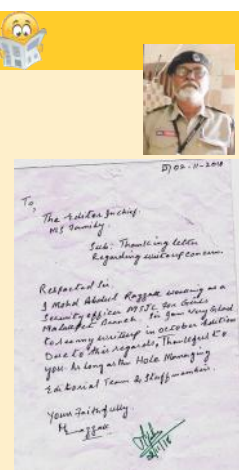 D) 02-11-2018
To,
The Editor In chief.
MS Family
Sub: Thanking letter
Regarding writeup concern.
Respected Sir.
I Mohd Abdul Razzak working as a
Security officer MSJC for Girls
Malakpet Branch. Sir I am Very Glad
To see my writeup in October Edition
Due to this regards, Thankful to
you. As long as the Hole Managing
Editorial Team & Staff members.
Yours Faithfully
Razzak